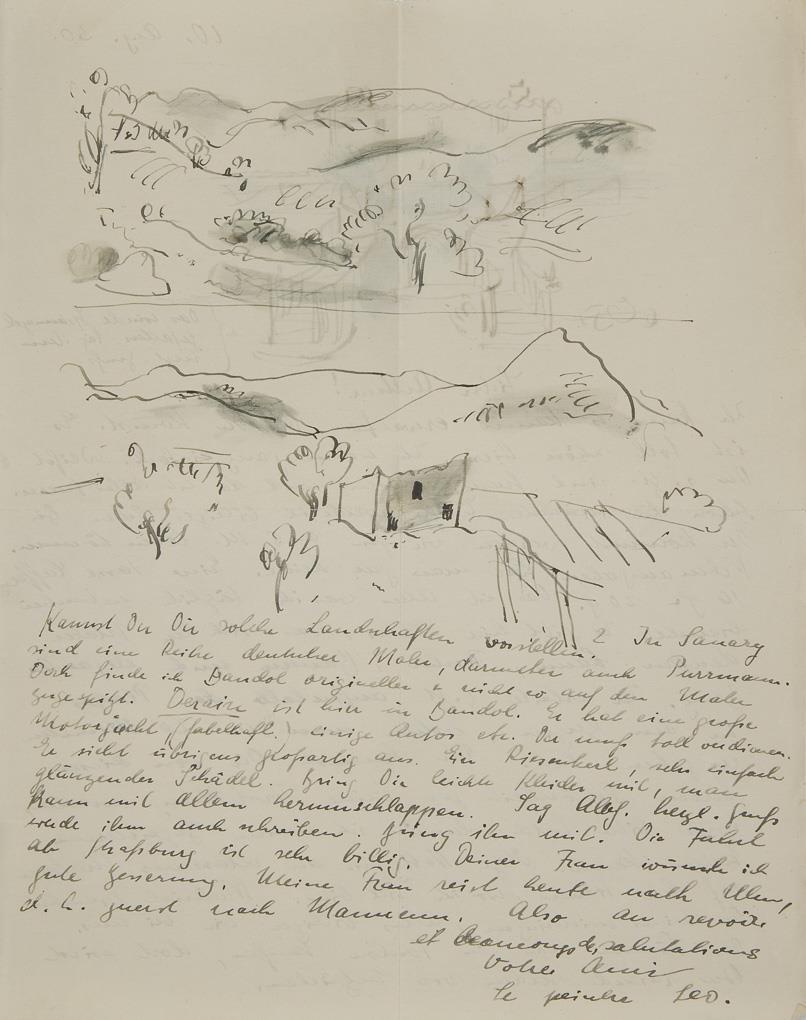 Kannst Du Dir solche Landschaften vorstellen? In Sanary
sind eine Reihe deutscher Maler, darunter auch Purrmann.
Doch finde ich Bandol origineller + nicht so auf den Maler
zugespitzt. Derain ist hier in Bandol. Er hat eine große
Motorjacht, (fabelhaft.) einige Autos etc. Der muß toll verdienen.
Er sieht übrigens großartig aus. Ein Riesenkerl, sehr einfach
glänzender Schädel. Bring Dir leichte Kleider mit, man
kann mit allem herumschlappen. Sag herzl. Gruß
werde ihm auch schreiben. Bring ihn mit. Die Fahrt
ab Straßburg ist sehr billig. Deiner Frau wünsche ich
gute Besserung. Meine Frau reist heute nach Ulm,
d. h. zuerst nach Mannem. Also au revoir
et salutations
Votre Ami
le peintre Leo.